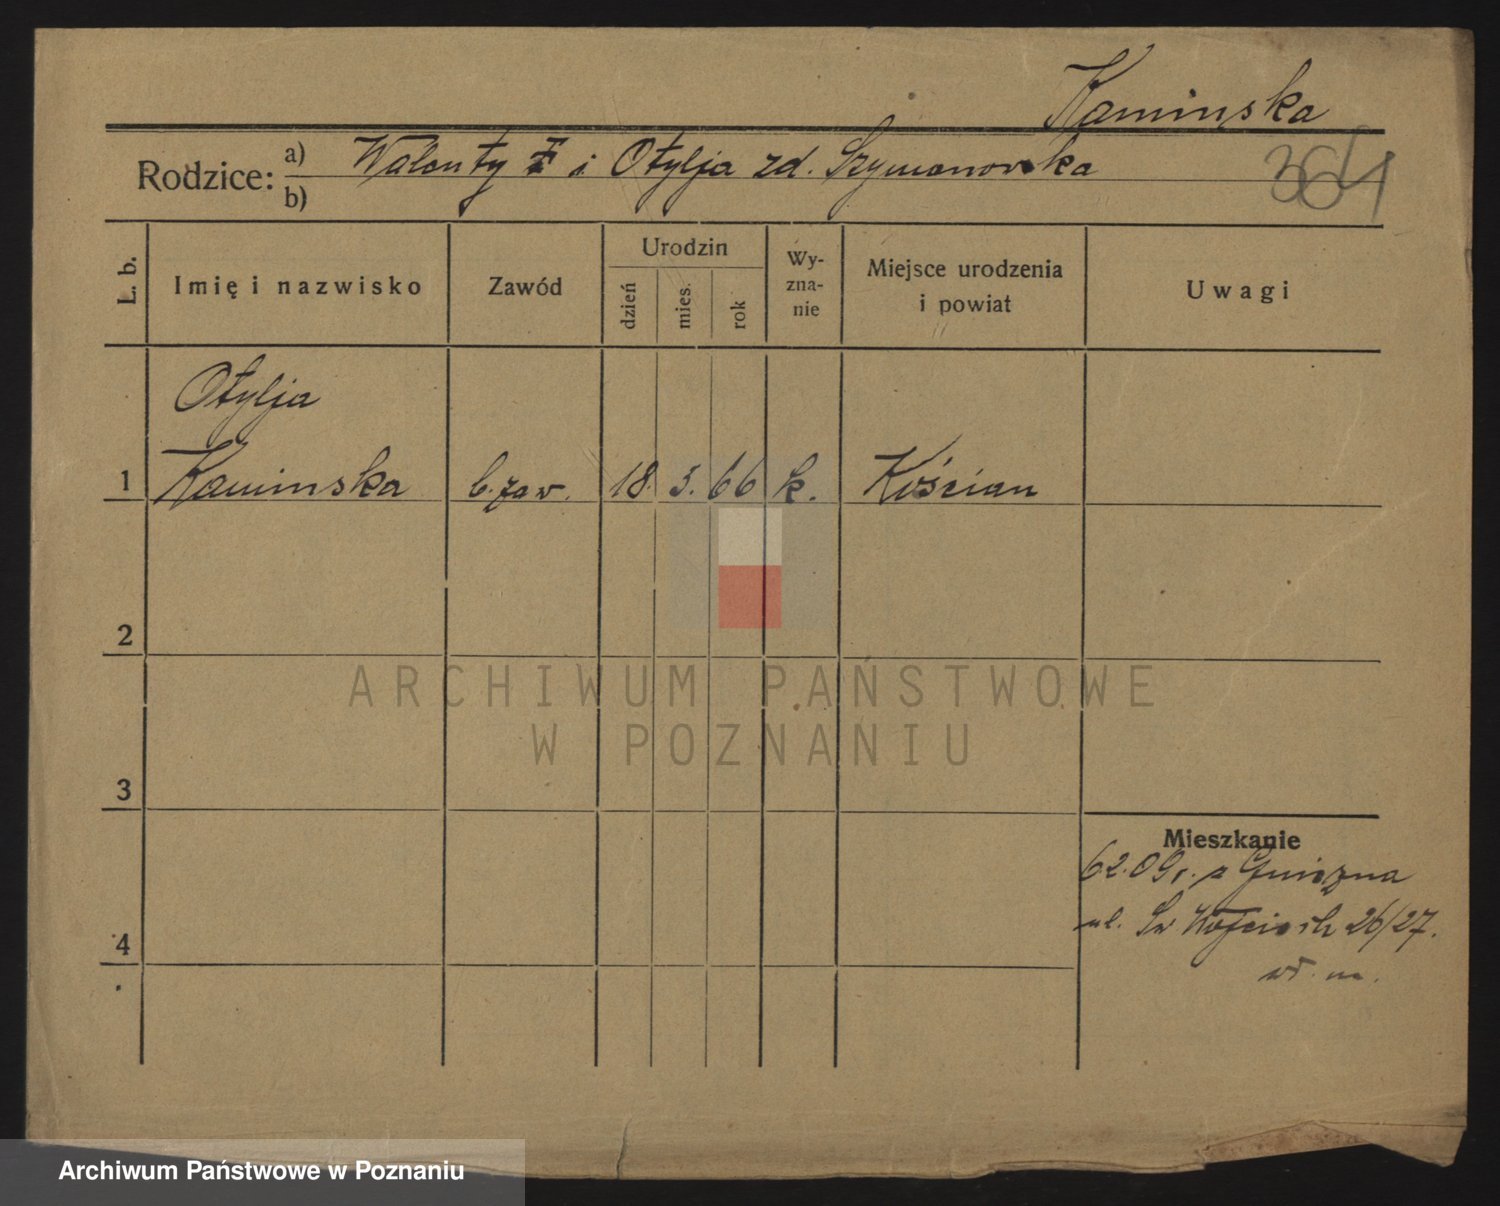 Kaminska
Rodzice: a) Walenty i Otylja zd. Szymanowska
b)
364
L. b. Imię i nazwisko Zawód Urodzin dzień mies. rok Wy-zna-nie Miejsce urodzenia i powiat Uwagi
Otylja
1 Kaminska b. zaw. 18. 5. 66 k. Kościan
2
ARCHIWUM PAŃSTWOWE
W POZNANIU
3
Mieszkanie
6 2.09 r. z Gniezna
ul. Św Wojciech 26/27.
4
Archiwum Państwowe w Poznaniu